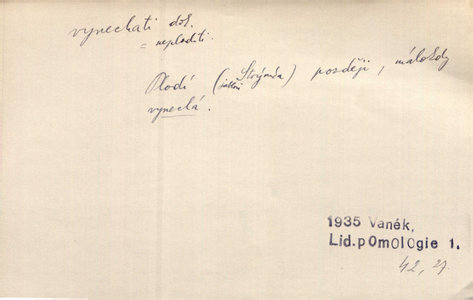 vynechati dok.
= neploditi.
Plodí (jabloň Strýmka) později, málokdy
vynechá.
1935 Vaněk,
Lid.pomologie 1.
42, 27.